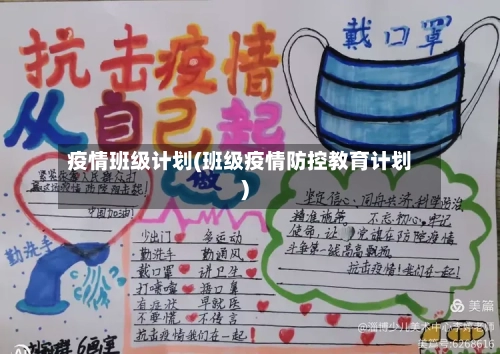 抗击疫情
戴口罩
从自己起
疫情班级计划(班级疫情防控教育计划
)
做
中国加油!
勤洗手
少出门 多运动
勤洗手 勤通风
戴口罩 讲卫生
打喷嚏 捂口鼻
有症状 早就医
不要慌 不传言
抗击疫情我们在一起!
坚定信心、同舟共济、科学防治
精准施策 不忘初心、牢记
使命,让 党旗在防险疫情
斗争第一线高高飘扬
抗击疫情!我们在一起!
美篇
美篇号:6268616